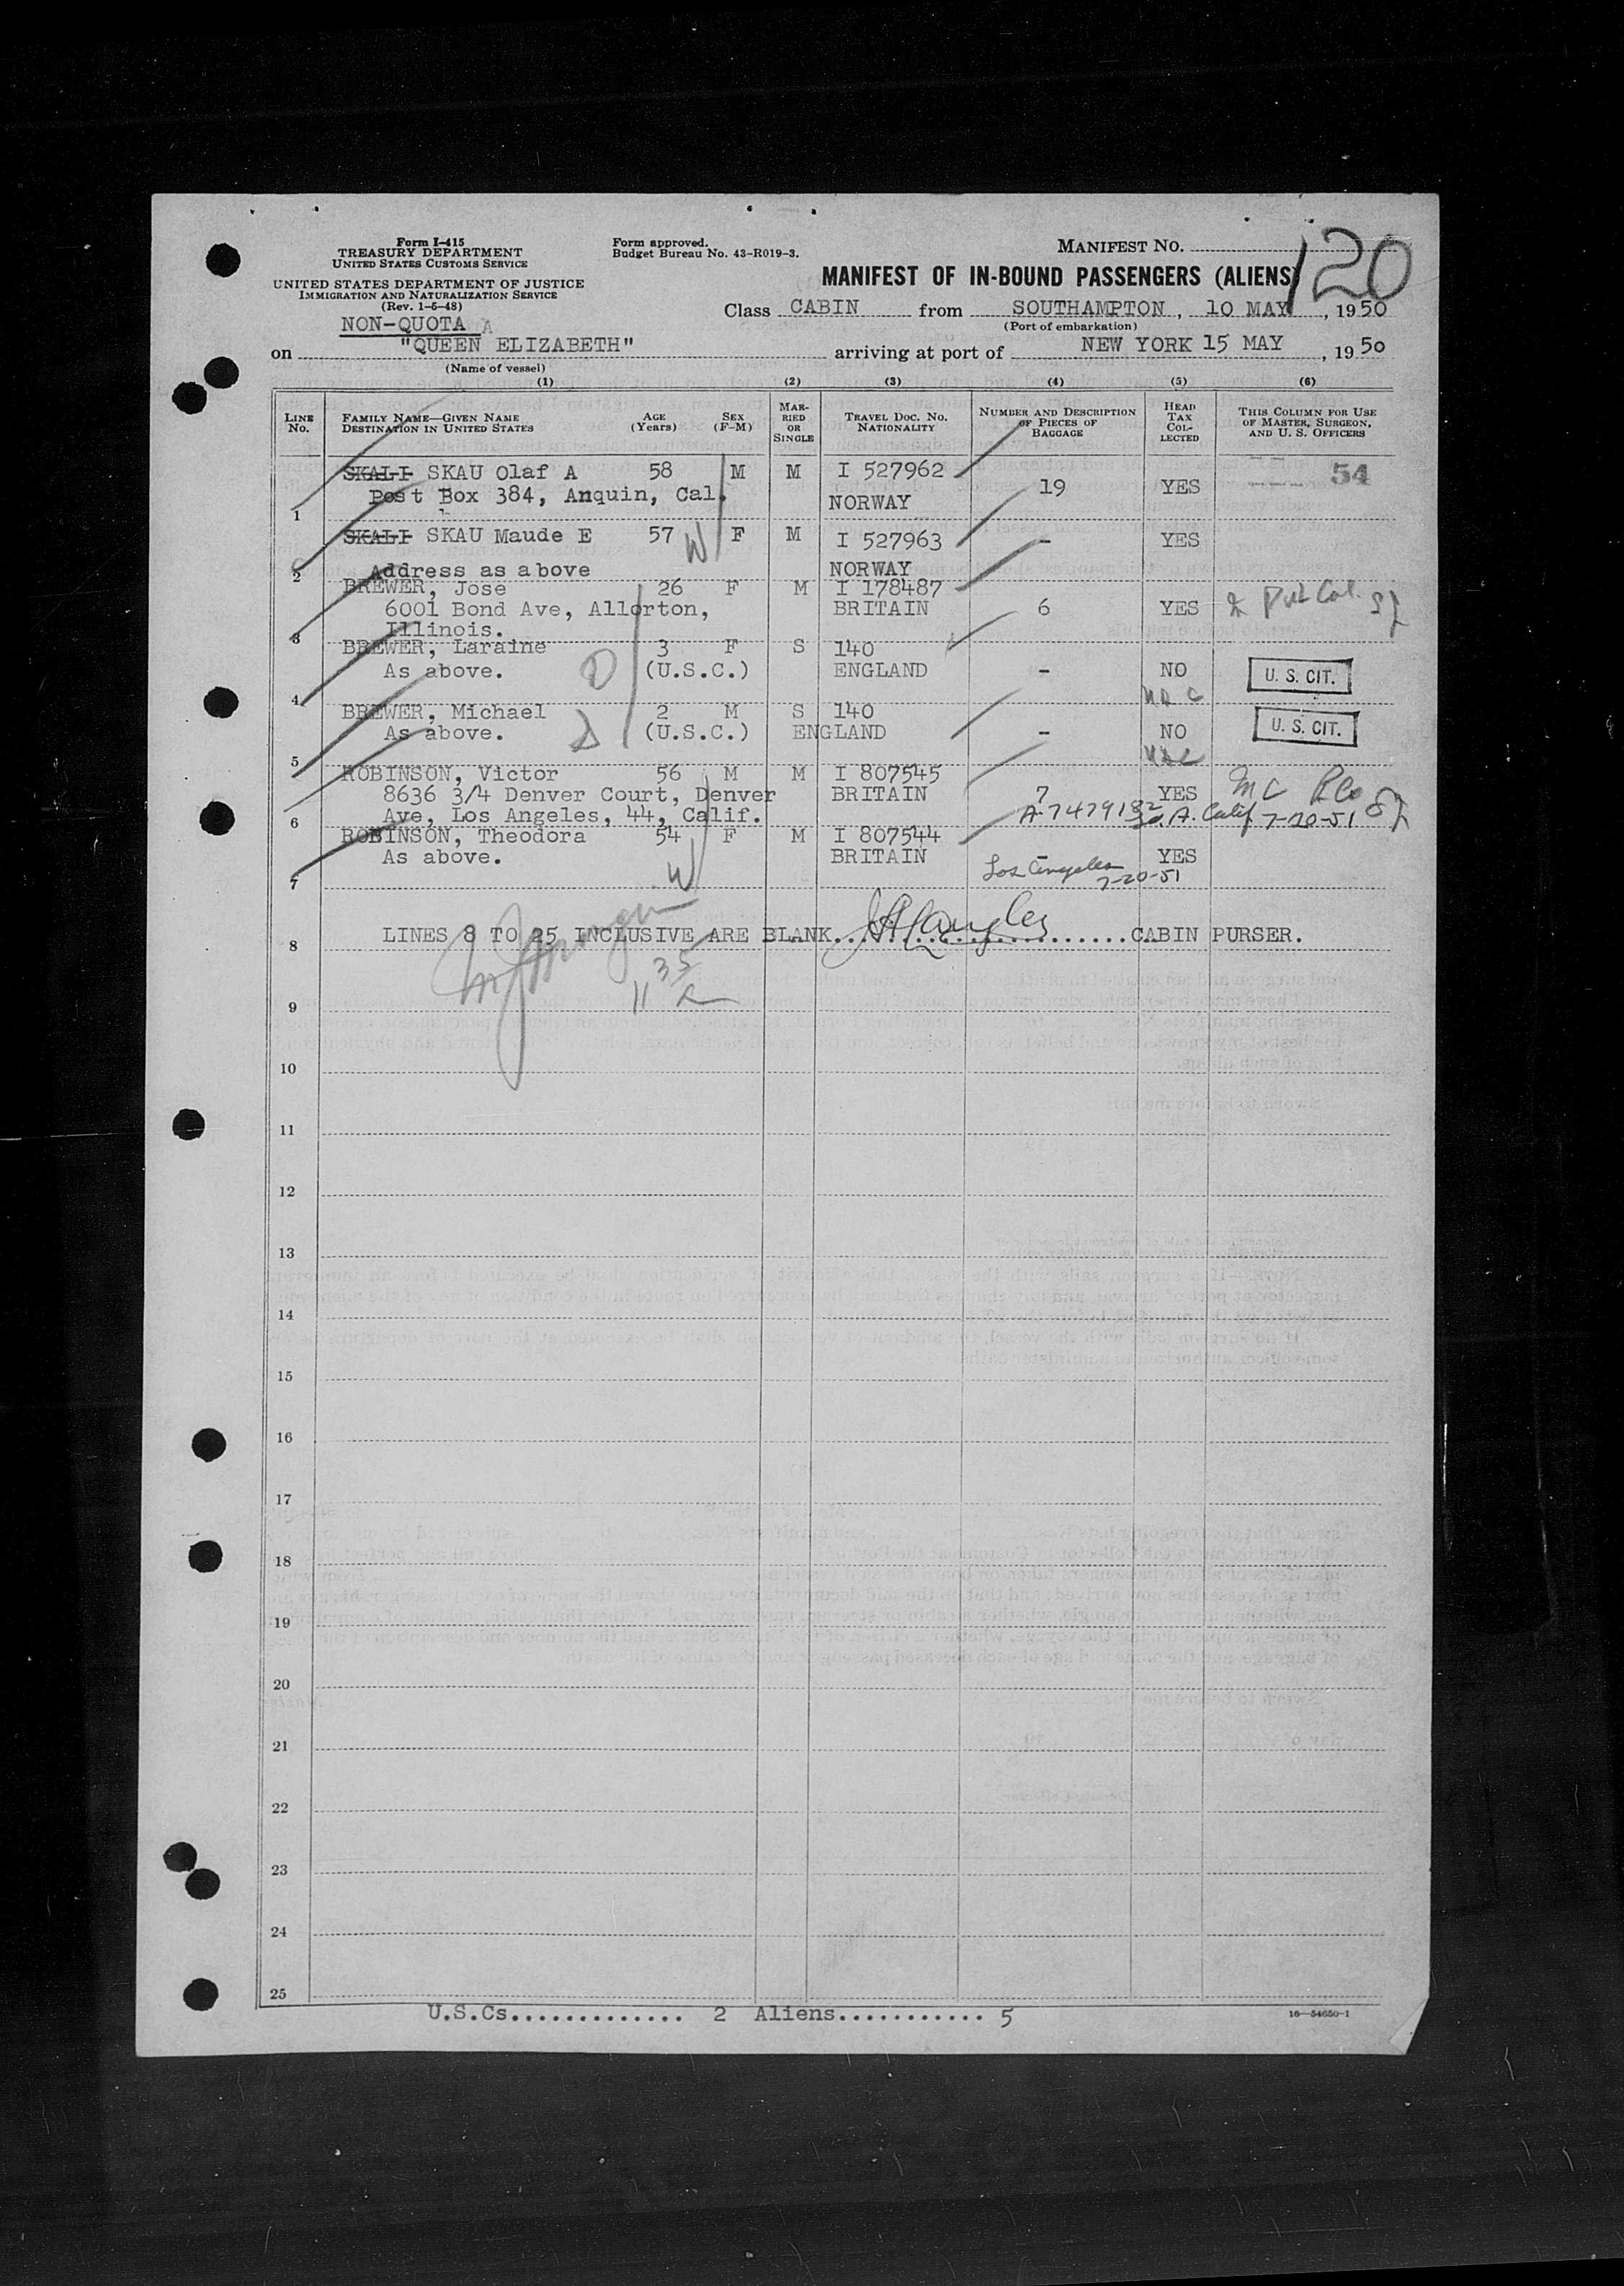 Form I-415
TREASURY DEPARTMENT
UNITED STATES CUSTOMS SERVICE
UNITED STATES DEPARTMENT OF JUSTICE
IMMIGRATION AND NATURALIZATION SERVICE
(Rev. 1-6-48)
Form approved.
Budget Bureau No. 43-R019-3.
MANIFEST NO. 120
MANIFEST OF IN-BOUND PASSENGERS (ALIENS)
NON-QUOTA A
Class CABIN from SOUTHAMPTON, 10 MAY, 1950
(Port of embarkation)
on "QUEEN ELIZABETH" arriving at port of NEW YORK 15 MAY, 1950
(Name of vessel)
(1) (2) (3) (4) (5) (6)
LINE NO. FAMILY NAME—GIVEN NAME DESTINATION IN UNITED STATES AGE (Years) SEX (F-M) MARRIED OR SINGLE TRAVEL DOC. NO. NATIONALITY NUMBER AND DESCRIPTION OF PIECES OF BAGGAGE HEAD TAX COLLECTED THIS COLUMN FOR USE OF MASTER, SURGEON, AND U. S. OFFICERS
SKALI SKAU Olaf A 58 M M I 527962 54
Post Box 384, Anquin, Cal. NORWAY 19 YES
1
SKALI SKAU Maude E 57 W F M I 527963 - YES
2 Address as above NORWAY
BREWER, Jose 26 F M I 178487
6001 Bond Ave, Allorton, BRITAIN 6 YES
3 Illinois.
BREWER, Laraine 3 F S 140
As above. (U.S.C.) ENGLAND - NO U. S. CIT.
4
BREWER, Michael 2 M S 140
As above. (U.S.C.) ENGLAND - NO U. S. CIT.
5
ROBINSON, Victor 56 M M I 807545
8636 3/4 Denver Court, Denver BRITAIN 7 YES
6 Ave, Los Angeles, 44, Calif. 7-20-51
ROBINSON, Theodora 54 F M I 807544
As above. W BRITAIN YES
7 Los Angeles 7-20-51
8 LINES 8 TO 25 INCLUSIVE ARE BLANK......................CABIN PURSER.
11 35
9
10
11
12
13
14
15
16
17
18
19
20
21
22
23
24
25
U.S.Cs............. 2 Aliens........... 5
16—54650-1